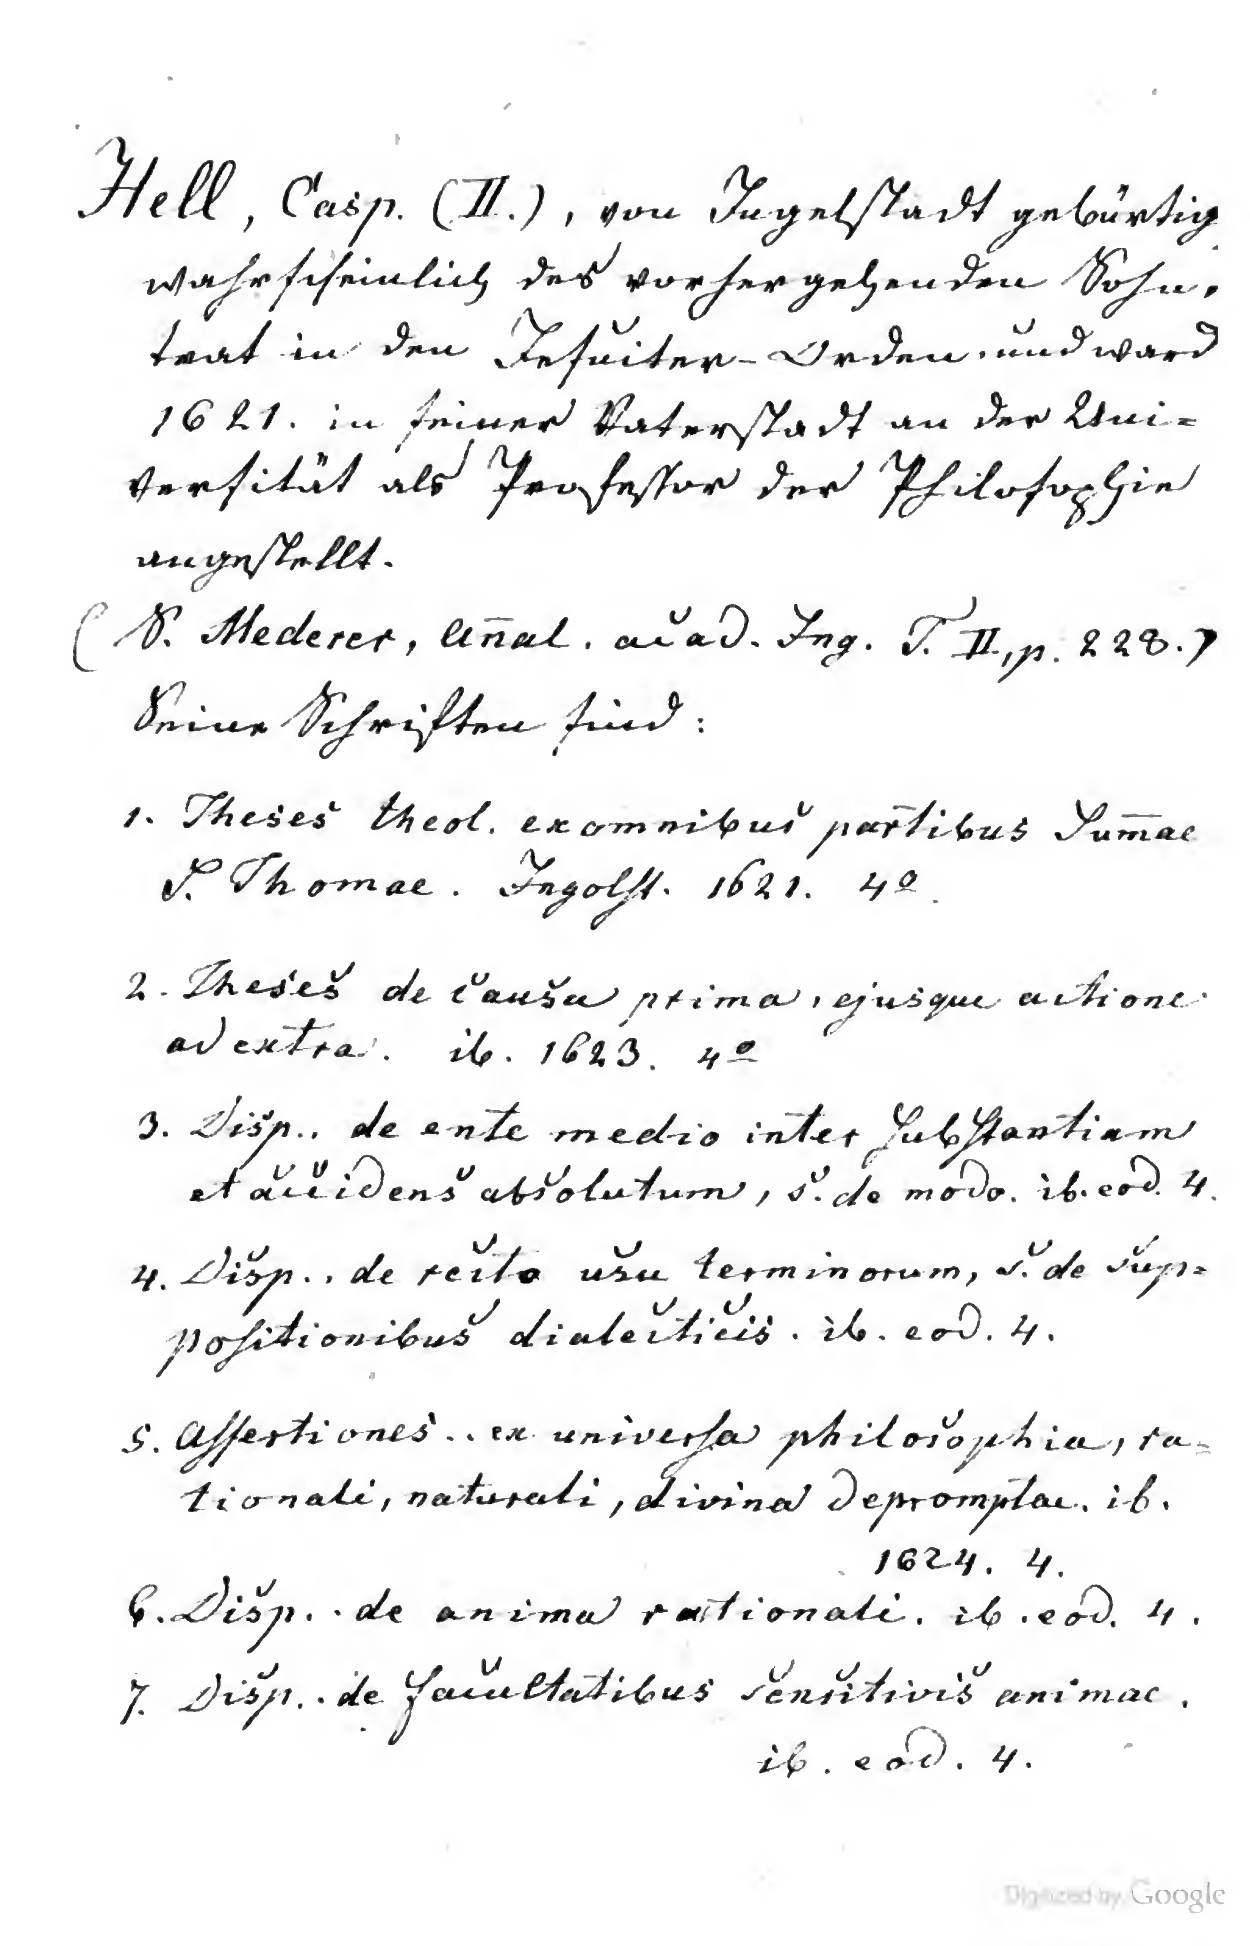 Hell, Casp. (II.), von Ingelstadt gebürtig
wahrscheinlich des vorhergehenden Sohn,
trat in den Jesuiter-Orden und ward
1621. in seiner Vaterstadt an der Uni=
versität als Professor der Philosophie
angestellt.
(S. Mederer, Añal. acad. Ing. T. II, p. 228.)
Seine Schriften sind:
1. Theses theol. ex omnibus partibus Sum̄ae
S. Thomae. Ingolst. 1621. 4º.
2. Theses de causa prima, ejusque actione
ad extra. ib. 1623. 4º
3. Disp.. de ente medio inter substantiam
et accidens absolutum, s. de modo. ib. eod. 4.
4. Disp.. de recto usu terminorum, s. de sup=
positionibus dialecticis. ib. eod. 4.
5. Assertiones.. ex universa philosophia, ra=
tionali, naturali, divina depromptae. ib.
1624. 4.
6. Disp.. de anima rationali. ib. eod. 4.
7. Disp.. de facultatibus sensitivis animae.
ib. eod. 4.
Digitized by Google